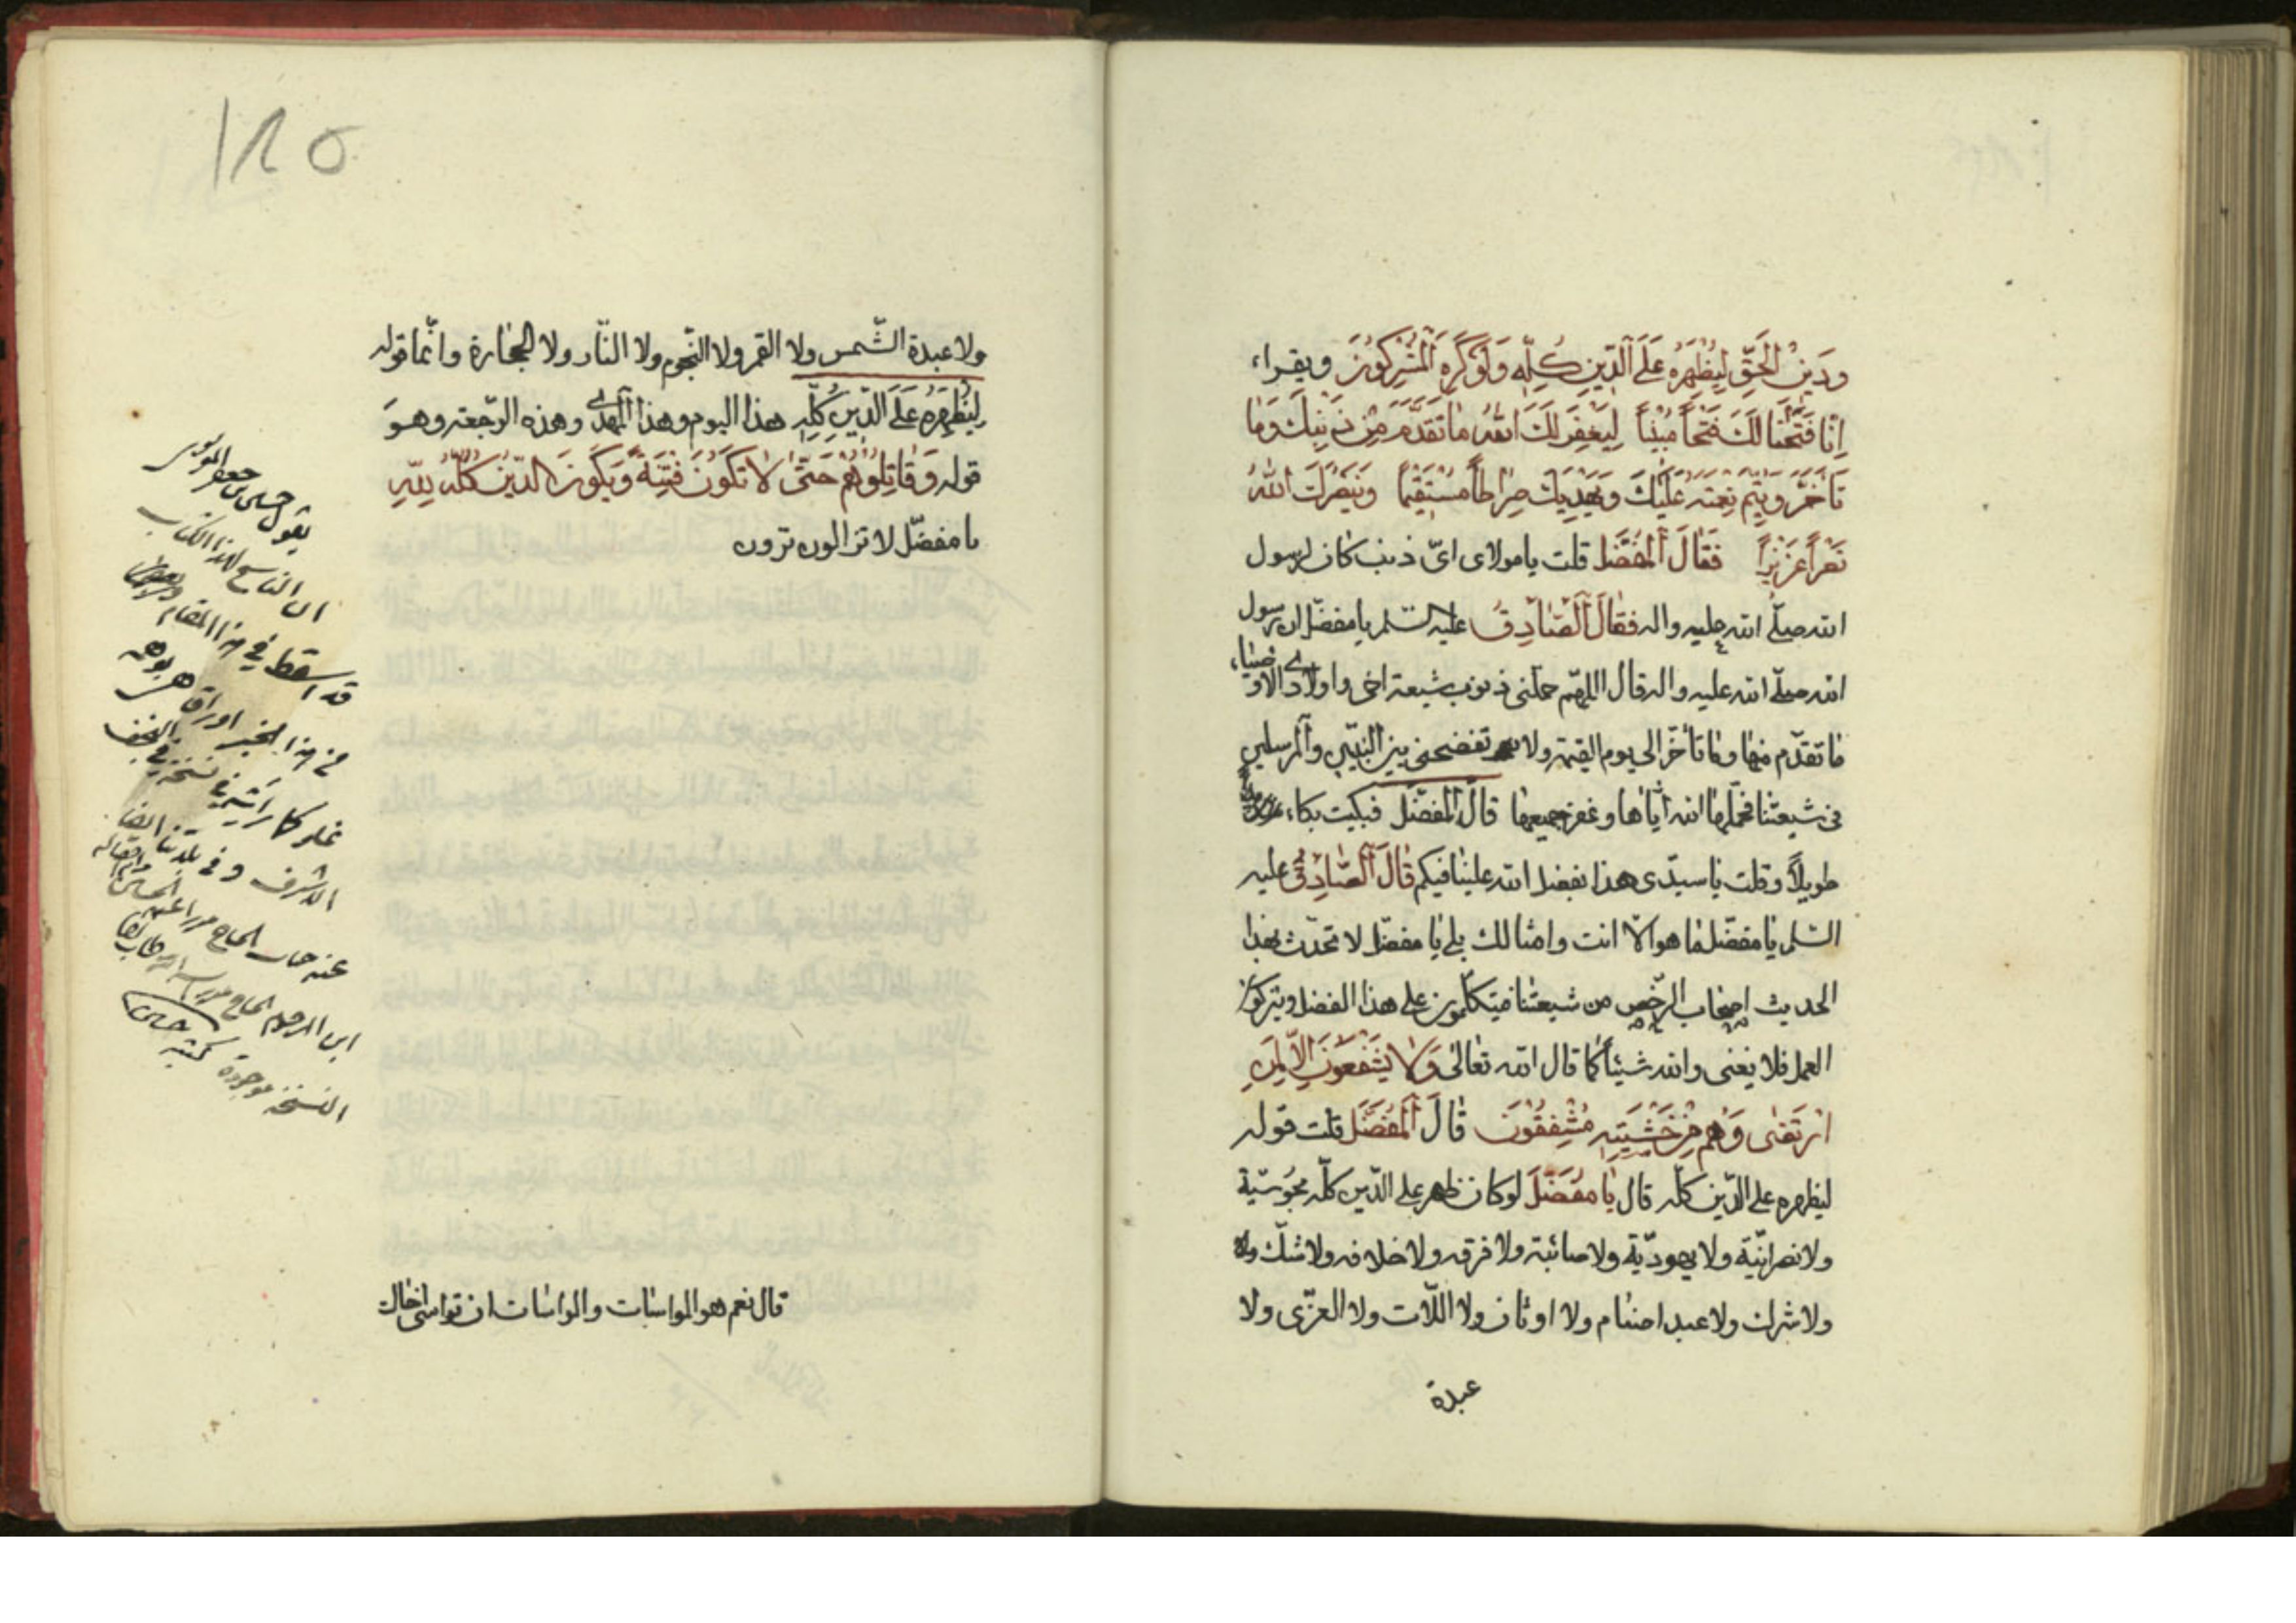 ودين الحق ليظهره على الدين كله ولو كره المشركون ويقراء
انا فتحنا لك فتحا مبينا ليغفر لك الله ما تقدم من ذنبك وما
تاخر ويتم نعمته عليك ويهديك صراطا مستقيما وينصرك الله
نصرا عزيزا فقال المفضل قلت يا مولاى اىّ ذنب كان لرسول
الله صلّى الله عليه واله فقال الصادق عليه السّلم يا مفضّل ان رسول
الله صلّى الله عليه واله قال اللهمّ حمّلنى ذنوب شيعة اخى واولادى الاوصياء
ما تقدّم منها وما تأخّر الى يوم القيمة ولا تفضحنى بين النبيّين والمرسلين
فى شيعتنا فحمّله الله ايّاها وغفر جميعها قال المفضّل فبكيت بكاء
طويلاً وقلت يا سيدّى هذا بفضل الله علينا فيكم قال الصّادق عليه
السّلم يا مفضّل ما هو الاّ انت وامثالك بلى يا مفضّل لا تحدّث بهذا
الحديث اصحاب الرّخص من شيعتنا فيتكلّمون على هذا الفضل ويتركوا
العمل فلا يغنى والله شيئاً كما قال الله تعالى ولا يشفعون الاّ لمن
ارتضى وهم من خشيته مشفقون قال المفضّل قلت قوله
ليظهره على الدّين كلّه قال يا مفضّل لو كان ظهر على الدّين كلّه مجوسيّة
ولا نصرانيّة ولا يهوديّة ولا صائبة ولا فرقه ولا خلافه ولا شكّ ولا
ولا شرك ولا عبد اصنام ولا اوثان ولا اللّات ولا العزّى ولا
عبدة
١٨٥
ولا عبدة الشّمس ولا القمر ولا النّجوم ولا النّار ولا الحجارة وانّما قوله
ليظهره على الدّين كلّه هذا اليوم وهذا المهدى وهذه الرّجعة وهو
قوله وقاتلوهم حتّى لا تكون فتنة ويكون الدّين كلّه للّه
يا مفضّل لا تزالون ترون
قال نعم هو المواسات والمواسات ان تواسى اخاك
يقول حسين بن جعفر الموسوى
ان الناسخ لهذا الكتاب
قد اسقط فى هذا المقام
من هذا الخبر اوراق
كما رأيته فى نسخة فى النجف
الاشرف وفى بلدتنا ايضا
ابن المرحوم الحاج
النسخة موجودة كتبه حسين